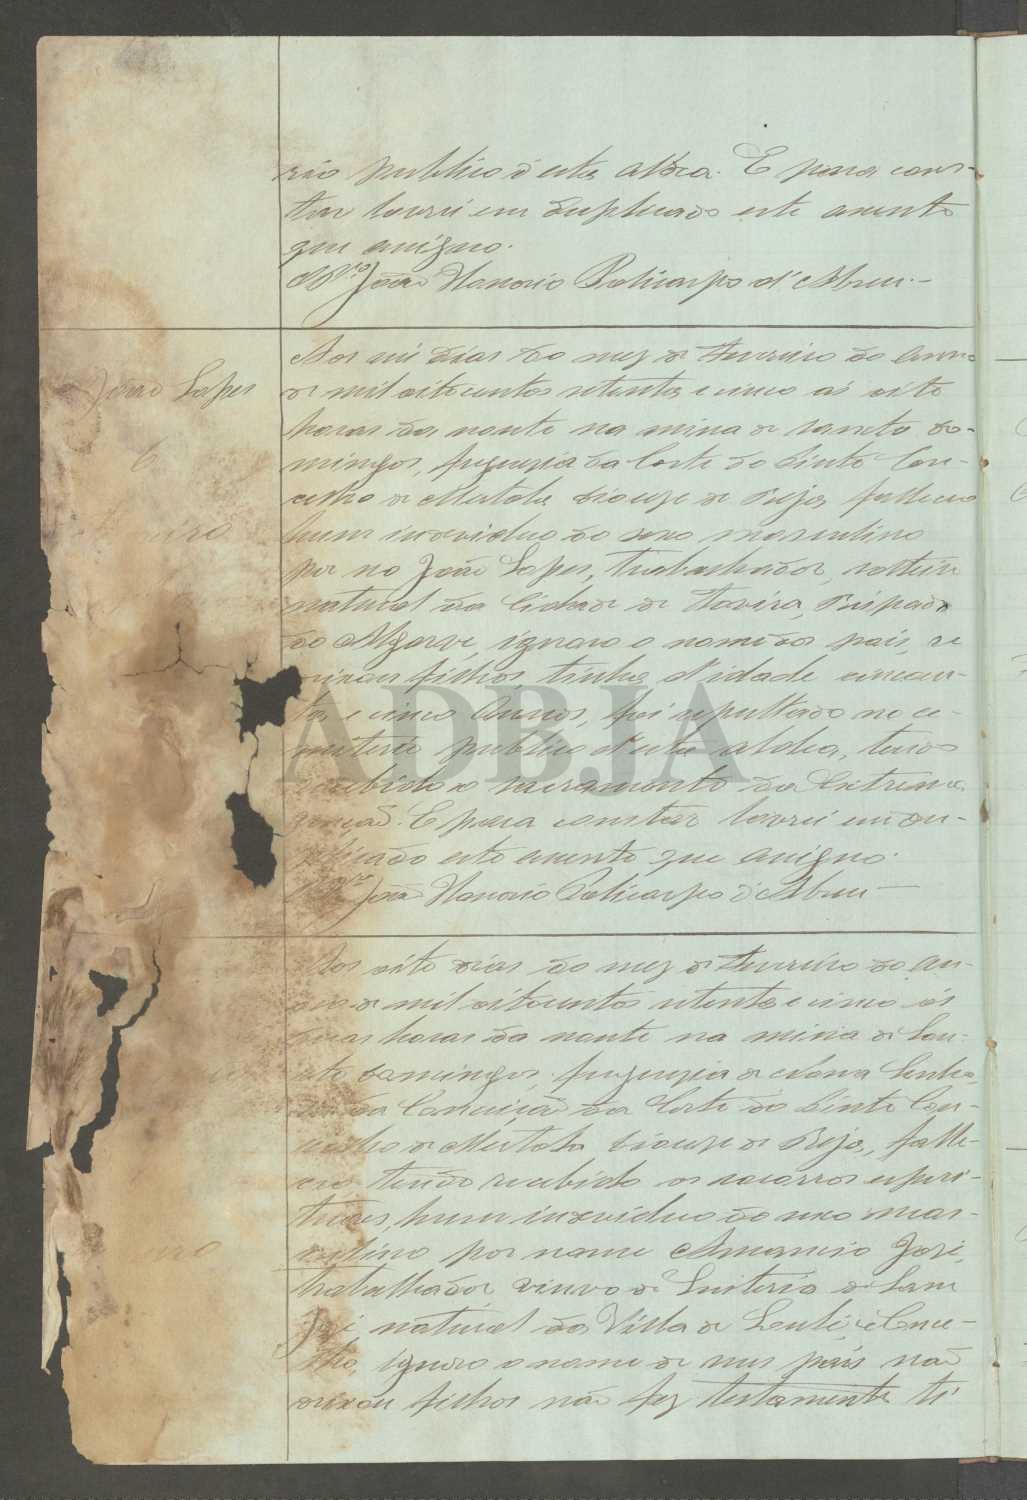 rio publico d'esta aldea. E para cons-
tar lavrei em duplicado este assento
que assigno.
O Vro João Honorio Policarpo d'Abreu.-
João Lopes
6
Aos seis dias do mez de Fevereiro do anno
de mil oitocentos setenta e cinco ás oito
horas da noute na mina de Sancto Do-
mingos, freguezia da Corte do Pinto Con-
celho de Mertola diocese de Beja, falleceo
hum individuo do sexo masculino
por no João Lopes, trabalhador, solteiro
natural da Cidade de Tavira, Bispado
do Algarve, ignoro o nome dos pais, se
filhos, tinha d'idade cincoen-
ta e cinco annos, foi sepultado no ce-
miterio publico d'esta aldea, tendo
recebido o sacramento da Extrema
unção. E para constar lavrei em du-
plicado este assento que assigno.
João Honorio Policarpo d'Abreu
Aos oito dias do mez de Fevereiro do an-
de mil oitocentos setenta e cinco ás
duas horas da noute na mina de San-
cto Domingos, freguezia de Nossa Senho
ra da Conceição da Corte do Pinto Con-
celho de Mertola diocese de Beja, falle-
ceo tendo recebido os socorros espiri-
tuaes, hum individuo do sexo mas-
culino por nome Amancio José,
trabalhador viuvo de Quiteria de Sam
José, natural da Villa de Loulé, e Conce-
lho, ignoro o nome de seus pais não
deixou filhos não fez testamento ti
ADBJA